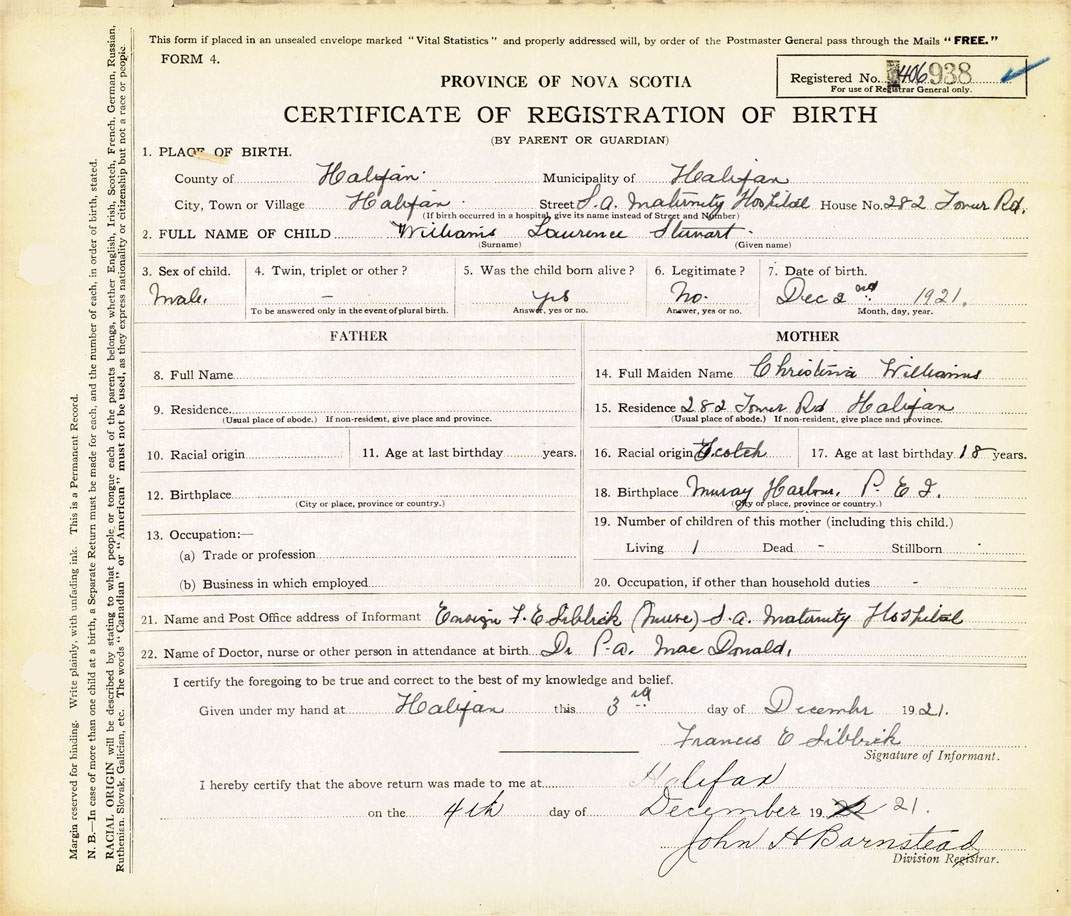 This form if placed in an unsealed envelope marked "Vital Statistics" and properly addressed will, by order of the Postmaster General pass through the Mails "FREE."
FORM 4.
Registered No. 406938
For use of Registrar General only.
PROVINCE OF NOVA SCOTIA
CERTIFICATE OF REGISTRATION OF BIRTH
(BY PARENT OR GUARDIAN)
1. PLACE OF BIRTH.
County of Halifax Municipality of Halifax
City, Town or Village Halifax Street S.A. Maternity Hospital House No. 282 Tower Rd.
(If birth occurred in a hospital, give its name instead of Street and Number)
2. FULL NAME OF CHILD Williams Lawrence Stewart
(Surname) (Given name)
3. Sex of child. 4. Twin, triplet or other? 5. Was the child born alive? 6. Legitimate? 7. Date of birth.
Male. – yes No. Dec 2nd 1921.
To be answered only in the event of plural birth. Answer, yes or no. Answer, yes or no. Month, day, year.
FATHER
8. Full Name
9. Residence
(Usual place of abode.) If non-resident, give place and province.
10. Racial origin 11. Age at last birthday years.
12. Birthplace
(City or place, province or country.)
13. Occupation:—
(a) Trade or profession
(b) Business in which employed
MOTHER
14. Full Maiden Name Christina Williams
15. Residence 282 Tower Rd Halifax
(Usual place of abode.) If non-resident, give place and province.
16. Racial origin Scotch 17. Age at last birthday 18 years.
18. Birthplace Muray Harbour, P. E I.
(City or place, province or country.)
19. Number of children of this mother (including this child.)
Living 1 Dead - Stillborn -
20. Occupation, if other than household duties -
21. Name and Post Office address of Informant Ensign F. E Sibbick (Nurse) S.A. Maternity Hospital
22. Name of Doctor, nurse or other person in attendance at birth Dr P.A. MacDonald.
I certify the foregoing to be true and correct to the best of my knowledge and belief.
Given under my hand at Halifax this 3rd day of December 1921.
Francis E Sibbick
Signature of Informant.
I hereby certify that the above return was made to me at Halifax
on the 4th day of December 19 22 21.
John H Barnstead
Division Registrar.
Margin reserved for binding. Write plainly, with unfading ink. This is a Permanent Record.
N. B.—In case of more than one child at a birth, a Separate Return must be made for each, and the number of each, in order of birth, stated.
RACIAL ORIGIN will be described by stating to what people or tongue each of the parents belongs, whether English, Irish, Scotch, French, German, Russian,
Ruthenian, Slovak, Galician, etc. The words "Canadian" or "American" must not be used, as they express nationality or citizenship but not a race or people.